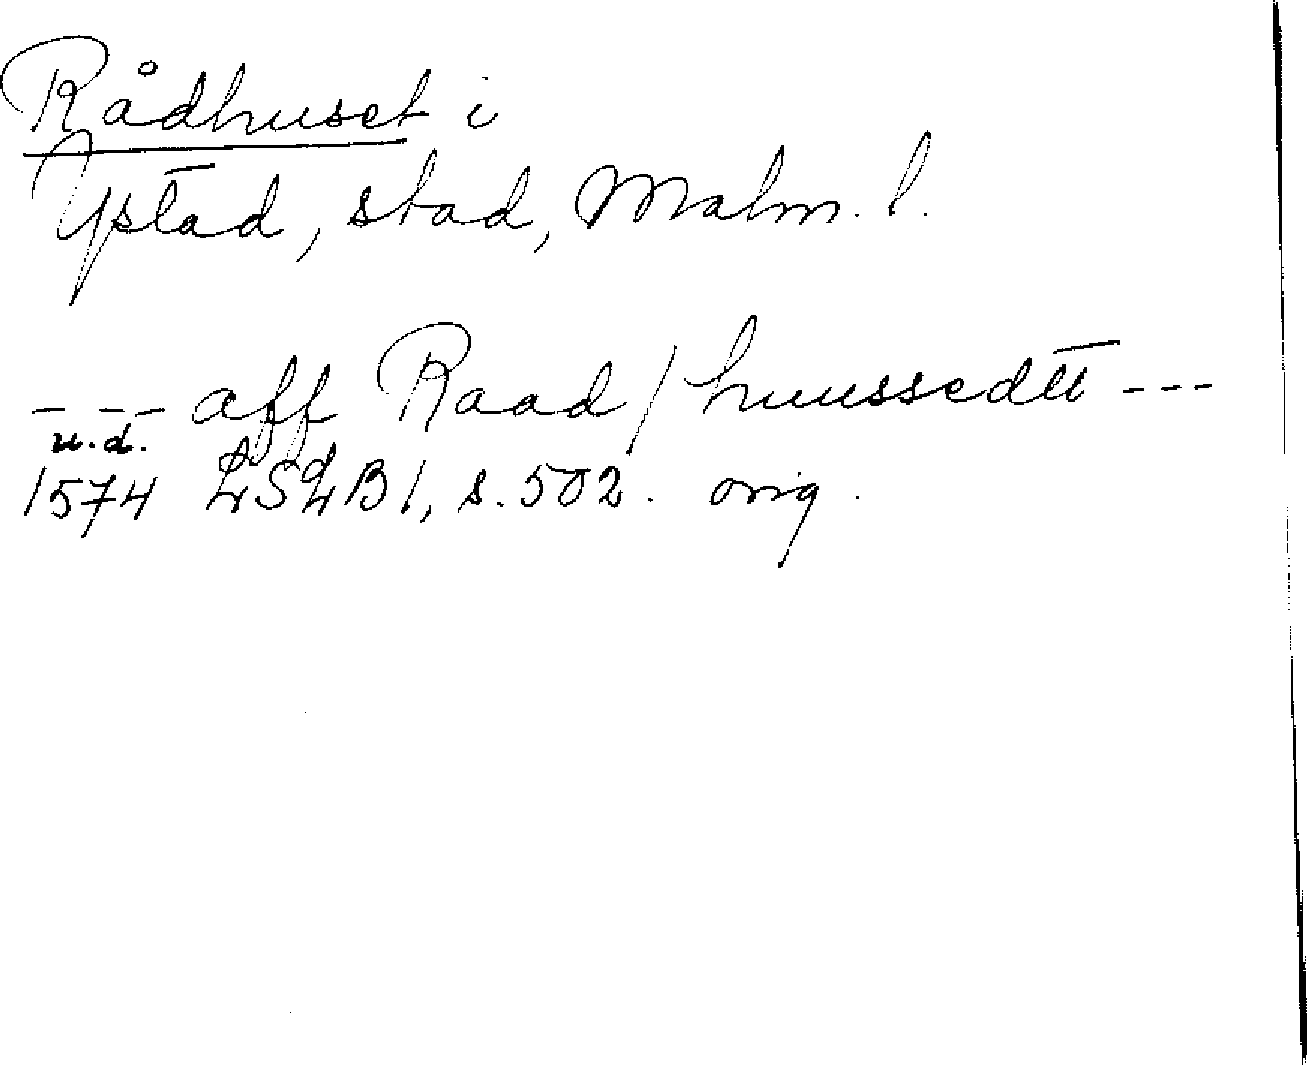 Rådhuset i
Ystad, stad, Malm. l.
--- aff Raad/huussedtt ---
u.d.
1574 LSLB1, s. 502. orig.